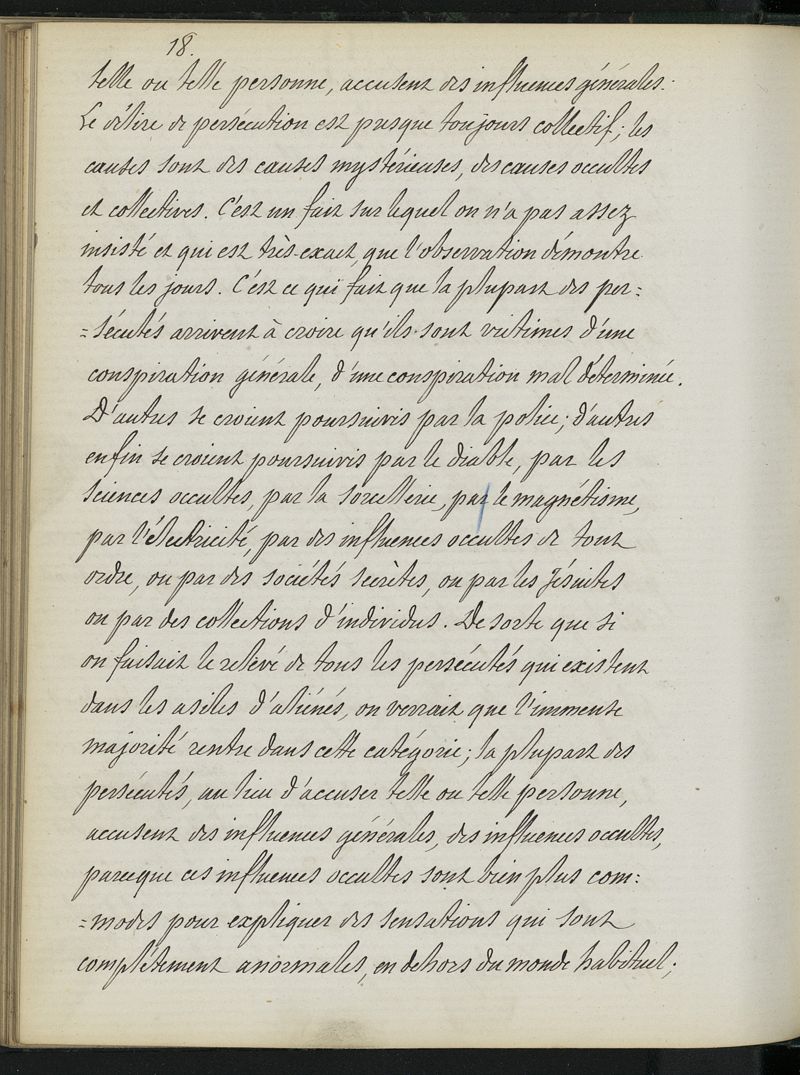 18.
telle ou telle personne, accusent des influences générales.
Le délire de persécution est presque toujours collectif; les
causes sont des causes mystérieuses, des causes occultes
et collectives. C'est un fait sur lequel on n'a pas assez
insisté et qui est très-exact, que l'observation démontre
tous les jours. C'est ce qui fait que la plupart des per:
=sécutés arrivent à croire qu'ils sont victimes d'une
conspiration générale, d'une conspiration mal déterminée.
D'autres se croient poursuivis par la police; d'autres
enfin se croient poursuivis par le diable, par les
sciences occultes, par la sorcellerie, par le magnétisme,
par l'électricité, par des influences occultes de tout
ordre, ou par des sociétés secrètes, ou par les Jésuites
ou par des collections d'individus. De sorte que si
on faisait le relevé de tous les persécutés qui existent
dans les asiles d'aliénés, on verrait que l'immense
majorité rentre dans cette catégorie; la plupart des
persécutés, au lieu d'accuser telle ou telle personne,
accusent des influences générales, des influences occultes,
parceque ces influences occultes sont bien plus com:
=modes pour expliquer des sensations qui sont
complétement anormales, en dehors du monde habituel;